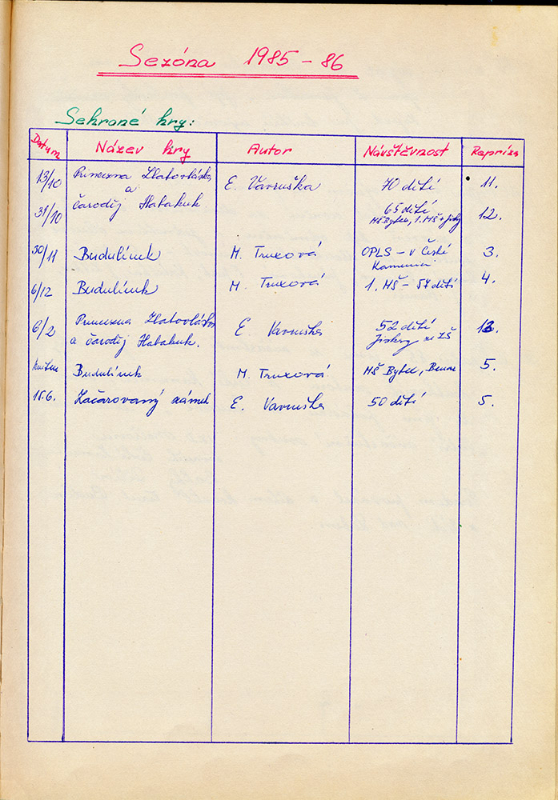 Sezóna 1985-86
Sehrané hry:
Datum Název hry Autor Návštěvnost Repríza
13/10 Princezna Zlatovláska E. Vavruška 70 dětí 11.
a
31/10 čaroděj Habakuk 65 dětí 12.
MŠ Bytex, 1. MŠ +
30/11 Budulínek M. Truxová OPLS - v České 3.
Kamenici
6/12 Budulínek M. Truxová 1. MŠ - 57 dětí 4.
6/2 Princezna Zlatovláska E Vavruška 52 dětí 13.
a čaroděj Habakuk. Jiskry ze ZŠ
Budulínek M. Truxová MŠ Bytex, 5.
15.6. Začarovaný zámek E. Vavruška 50 dětí 5.